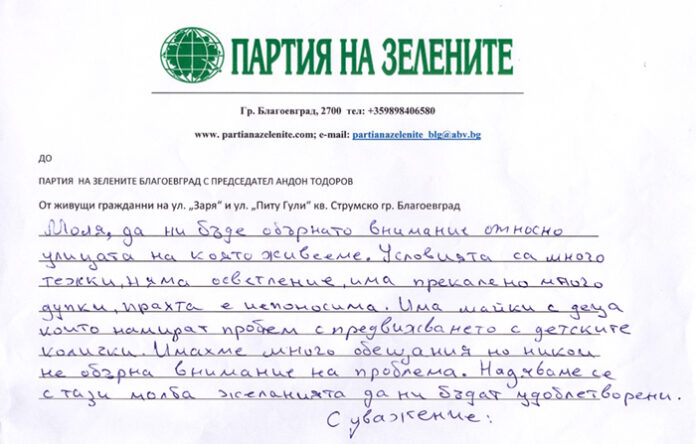 ПАРТИЯ НА ЗЕЛЕНИТЕ
Гр. Благоевград, 2700 тел: +359898406580
www. partianazelenite.com; e-mail: partianazelenite_blg@abv.bg
ДО
ПАРТИЯ НА ЗЕЛЕНИТЕ БЛАГОЕВГРАД С ПРЕДСЕДАТЕЛ АНДОН ТОДОРОВ
От живущи гражданни на ул. „Заря“ и ул. „Питу Гули“ кв. Струмско гр. Благоевград
Моля, да ни бъде обърнато внимание относно
улицата на която живееме. Условията са много
тежки, няма осветление, има прекалено много
дупки, прахта е непоносима. Има майки с деца
които намират проблем с предвижването с детските
колички. Имахме много обещания но никой
не обърна внимание на проблема. Надяваме се
с тази молба желанията да ни бъдат удовлетворени.
С уважение: